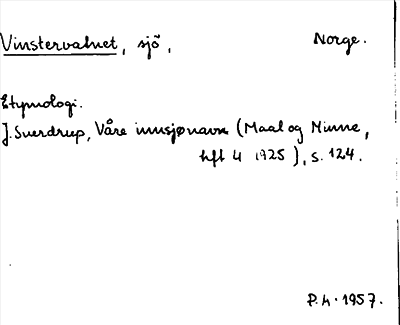 Vinstervatnet, sjö, Norge.
Etymologi.
J. Sverdrup, Våre innsjønavn (Maal og Minne,
hft 4 1925), s. 124.
P. h. 1957.